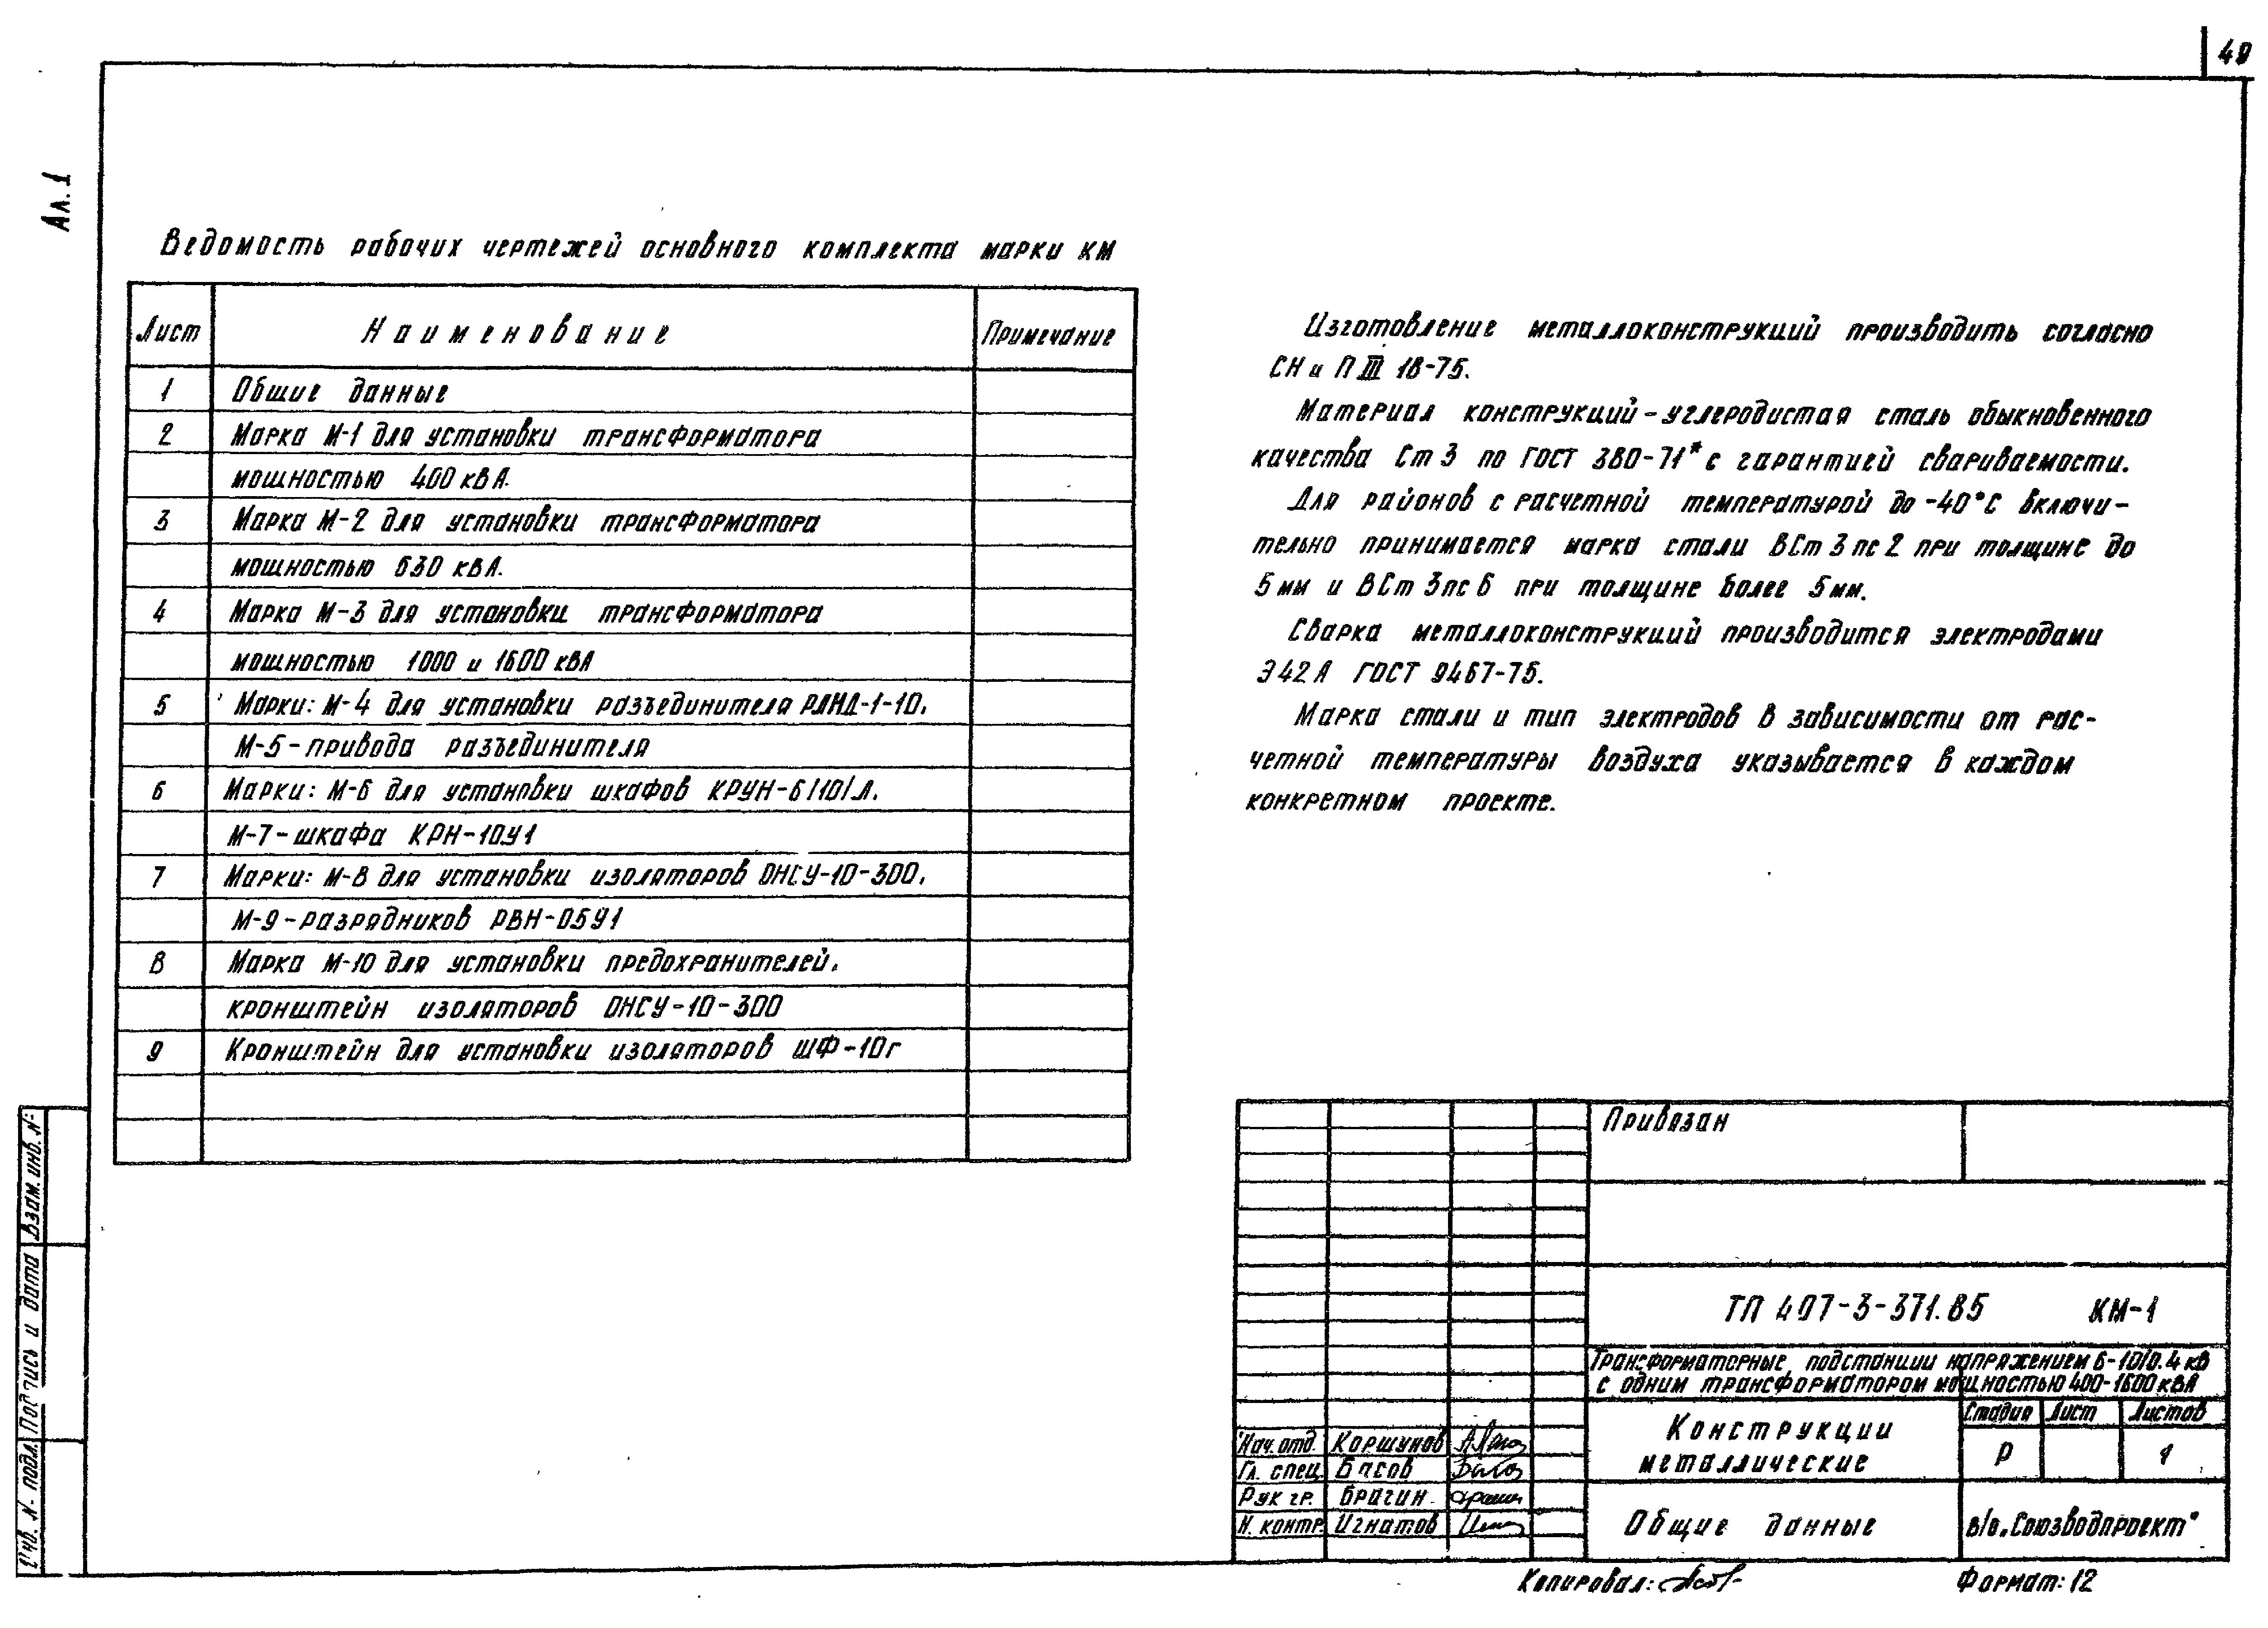 49
Ал. 1
Ведомость рабочих чертежей основного комплекта марки КМ
Лист Наименование Примечание
1 Общие данные
2 Марка М-1 для установки трансформатора
мощностью 400 кВА.
3 Марка М-2 для установки трансформатора
мощностью 630 кВА.
4 Марка М-3 для установки трансформатора
мощностью 1000 и 1600 кВА
5 Марки: М-4 для установки разъединителя РЛНД-1-10,
М-5-привода разъединителя
6 Марки: М-6 для установки шкафов КРУН-6/10/Л,
М-7-шкафа КРН-10У1
7 Марки: М-8 для установки изоляторов ОНСУ-10-300,
М-9-разрядников РВН-05У1
8 Марка М-10 для установки предохранителей,
кронштейн изоляторов ОНСУ-10-300
9 Кронштейн для установки изоляторов ШФ-10г
Изготовление металлоконструкций производить согласно
СН и П III 18-75.
Материал конструкций-углеродистая сталь обыкновенного
качества Ст 3 по ГОСТ 380-71* с гарантией свариваемости.
Для районов с расчетной температурой до -40°С включи-
тельно принимается марка стали ВСт 3 пс 2 при толщине до
5 мм и ВСт 3пс 6 при толщине более 5 мм.
Сварка металлоконструкций производится электродами
Э42А ГОСТ 9467-75.
Марка стали и тип электродов в зависимости от рас-
четной температуры воздуха указывается в каждом
конкретном проекте.
Привязан
ТП 407-3-371.85 КМ-1
Трансформаторные подстанции напряжением 6-10/0.4 кВ
с одним трансформатором мощностью 400-1600 кВА
Конструкции
металлические
Стадия Лист Листов
Р 1
Нач. отд. Коршунов
Гл. спец Басов
Рук гр. Брагин
Н. контр Игнатов
Общие данные
в/о „Союзводпроект"
Копировал:
Формат: 12
Взам. инв. №
Подпись и дата
Инв. № подл.